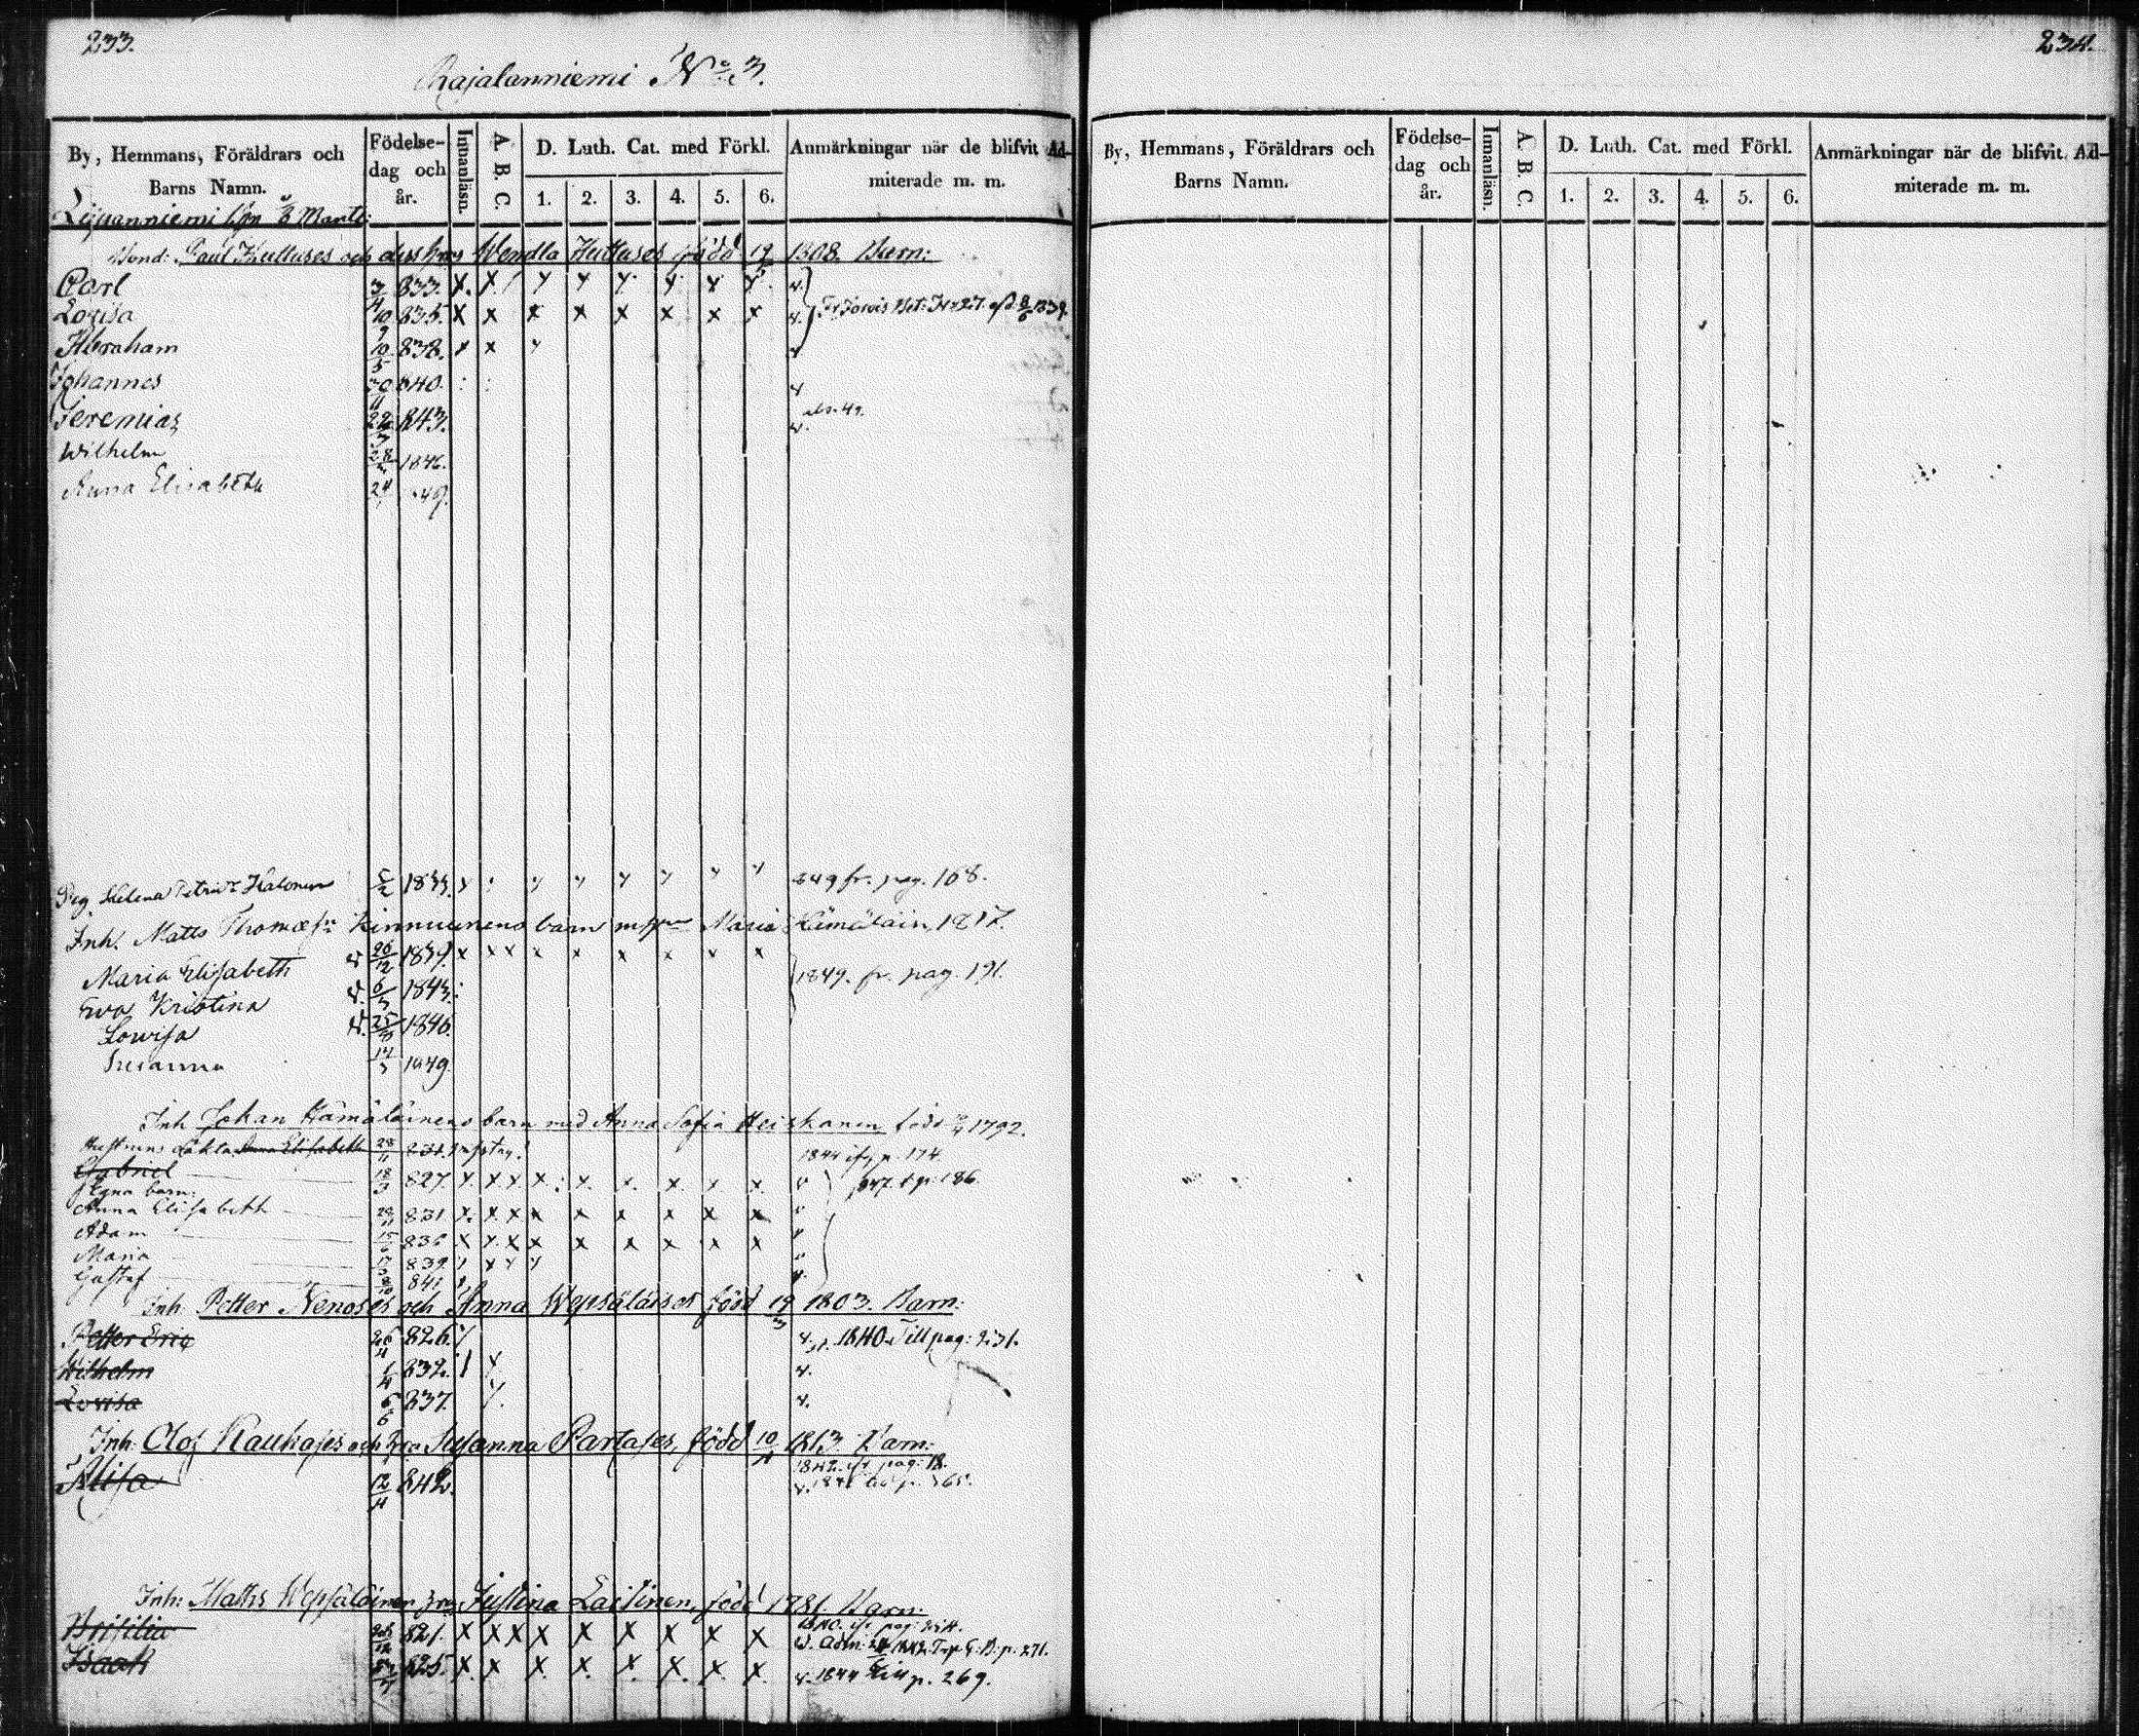 233.
Rajalanniemi No 3.
By, Hemmans, Föräldrars och Barns Namn.
Födelse-dag och år.
Innanläsn.
A. B. C.
D. Luth. Cat. med Förkl.
1. 2. 3. 4. 5. 6.
Anmärkningar när de blifvit Ad-miterade m. m.
Bond: Paul Hulluses och Wendla Huttuses född 19 1808. Barn:
Carl 3/4 833. x. x
Lovisa 10/9 835. x x x x x x x x
Abraham 19/5 838. x x
Johannes 30/11 840.
Jeremias 22/3 843.
Wilhelm 28 1846.
Anna Elisabeth 24 49.
Pig. Helena Petri Dr Halonen 5/2 1833. 849 fr. pag. 168.
Inh. Matts Thomæ sn Kinnunens barn m. Maria Hämäläin, 1817.
Maria Elisabeth 26/12 1839. x x x x x x x x x
1849. fr. pag. 191.
Eva Kristina 6/3 1843.
Lovisa 25 1846.
Susanna 17 1849.
Inh Johan Hämäläinens barn med Anna Sofia Heiskanen född 1792.
Anna Elisabeth 28/11 831. 1844 p. 174.
Gabriel 18/3 827. x x x x x x x x x 847. p. 186.
Egna barn:
Anna Elisabeth 28/11 831 x. x x x x x x x x
Adam 15/6 836 x x. x x x x x x x
Maria 17/3 839.
Gustaf 8/10 841
Inh: Petter Nenoses och Anna Wepsäläises född 19/3 1803. Barn:
Petter Eric 26/4 826. 1840. Till pag: 231.
Wilhelm 1/4 832.
Lovisa 6/6 837.
Inh: Olof Kauhases och Susanna Partases, född 10 1813. Barn:
1842. pag: 18.
Alisa 12/4 842.
Inh: Matts Wepsäläinen Justina Laitinen, född 1781. Barn:
Brisilia 26/12 821. x x x x x x x x x Adm: 24 1842. p. 271.
Isaak 825. x. x x. x. x. x. x. x. 1844 till p. 269.
234.
By, Hemmans, Föräldrars och Barns Namn.
Födelse-dag och år.
Innanläsn.
A. B. C.
D. Luth. Cat. med Förkl.
1. 2. 3. 4. 5. 6.
Anmärkningar när de blifvit Ad-miterade m. m.